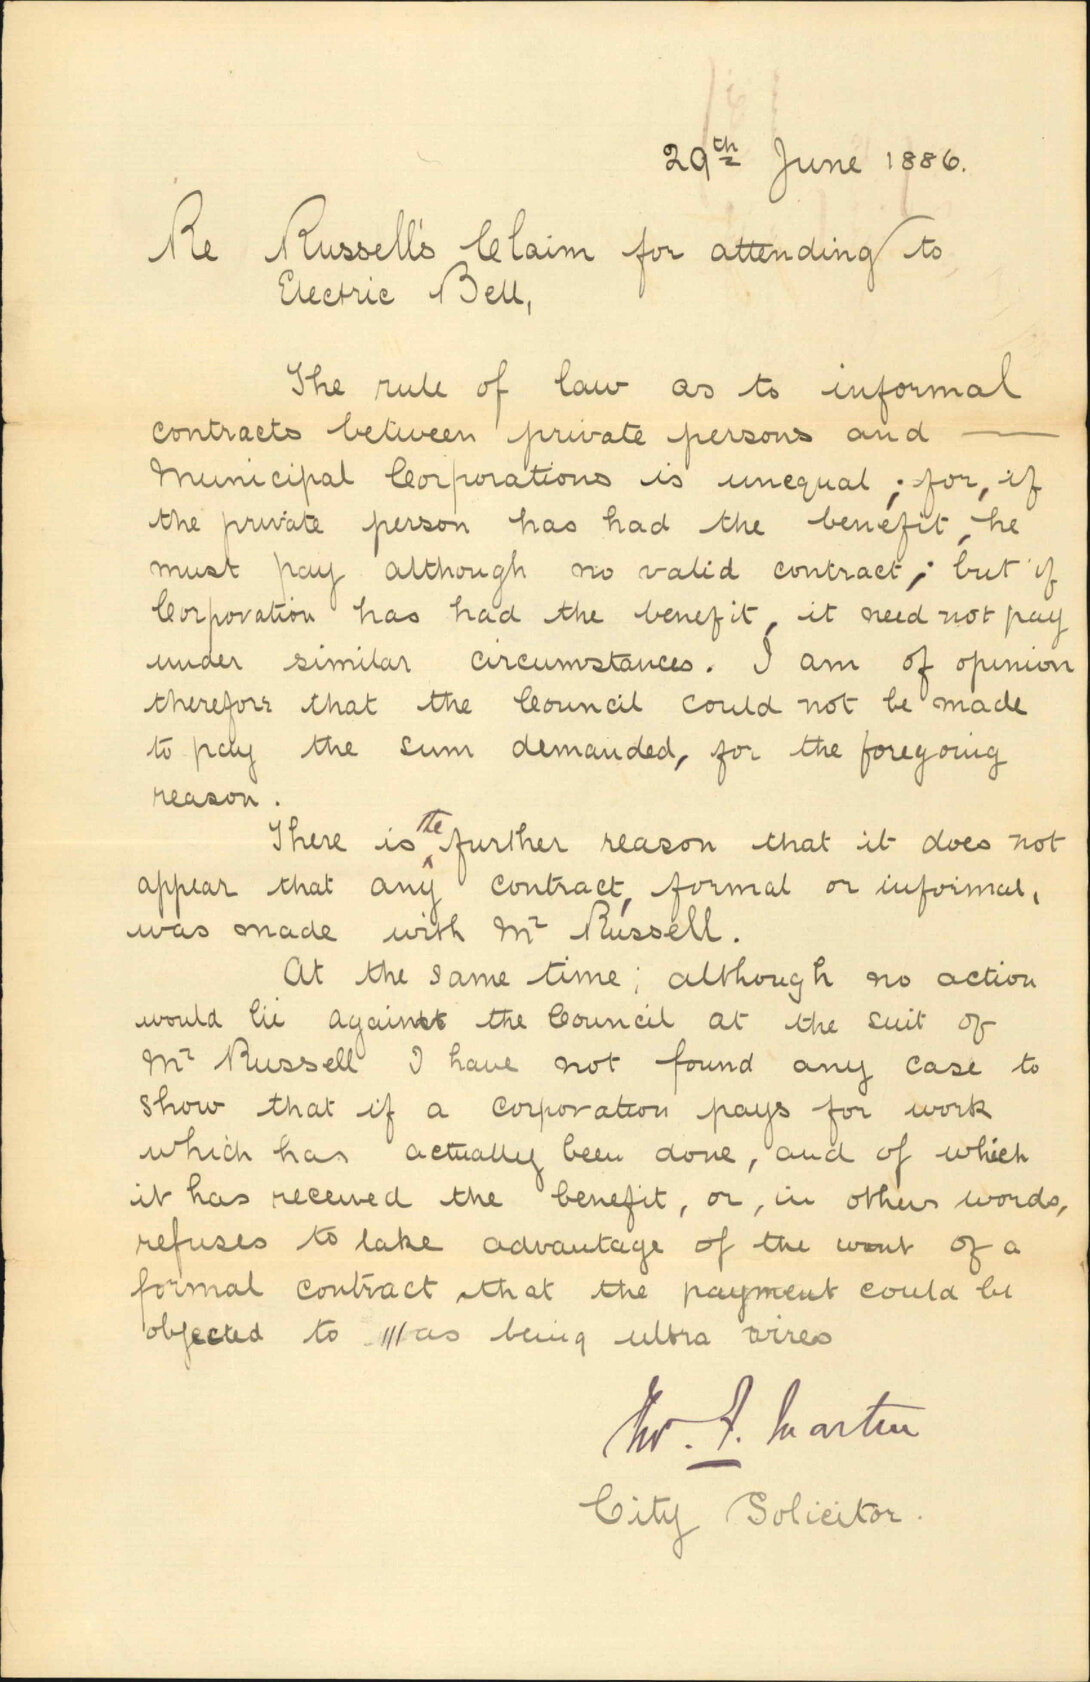 29th June 1886.
Re Russell's Claim for attending to
Electric Bell,
The rule of law as to informal
contracts between private persons and —
Municipal Corporations is unequal; for, if
the private person has had the benefit, he
must pay although no valid contract; but if
Corporation has had the benefit, it need not pay
under similar circumstances. I am of opinion
therefore that the Council could not be made
to pay the sum demanded, for the foregoing
reason.
There is the further reason that it does not
appear that any contract, formal or informal,
was made with Mr Russell.
At the same time; although no action
would lie against the Council at the suit of
Mr Russell I have not found any case to
show that if a corporation pays for work
which has actually been done, and of which
it has received the benefit, or, in others words,
refuses to take advantage of the want of a
formal contract that the payment could be
objected to as being ultra vires
Thos. F. Martin
City Solicitor.